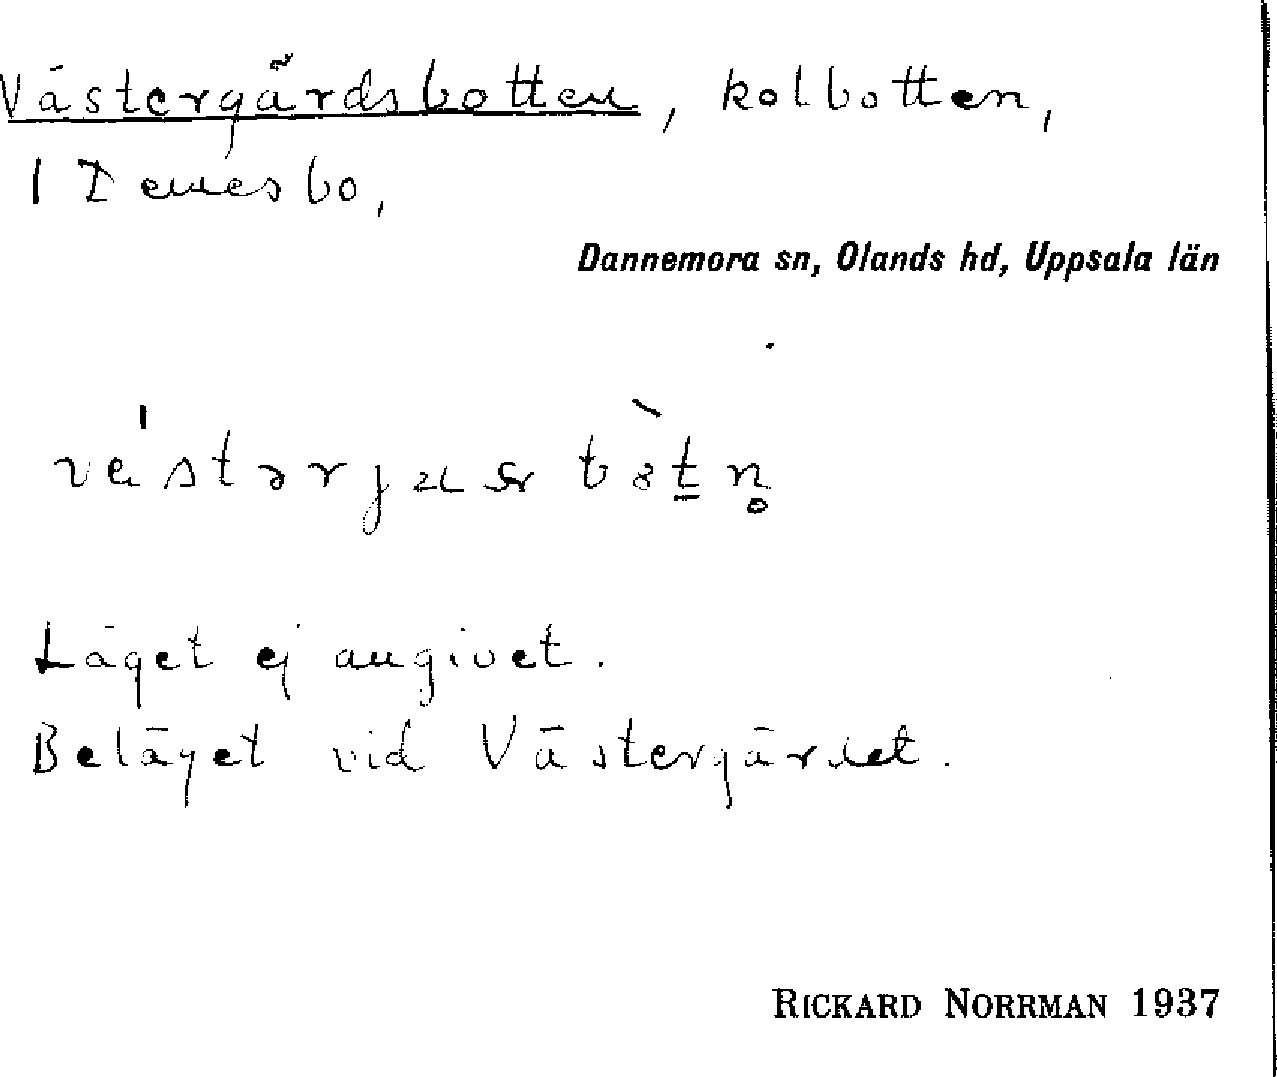 Västergärdsbotten, kolbotten,
1 Demesbo,
Dannemora sn, Olands hd, Uppsala län
Läget ej angivet.
Beläget vid Västergärdet.
RICKARD NORRMAN 1937